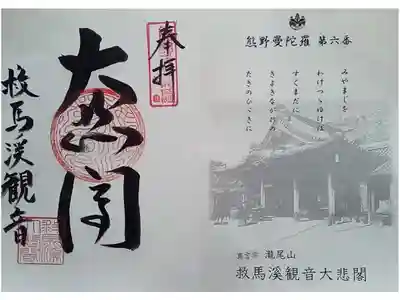 奉拝
大悲閣
救馬溪観音
熊野曼陀羅 第六番
みやまじを
わけつらぬけば
すくまだに
きよきながれの
たきのひゞきに
真言宗 瀧尾山
救馬溪観音大悲閣